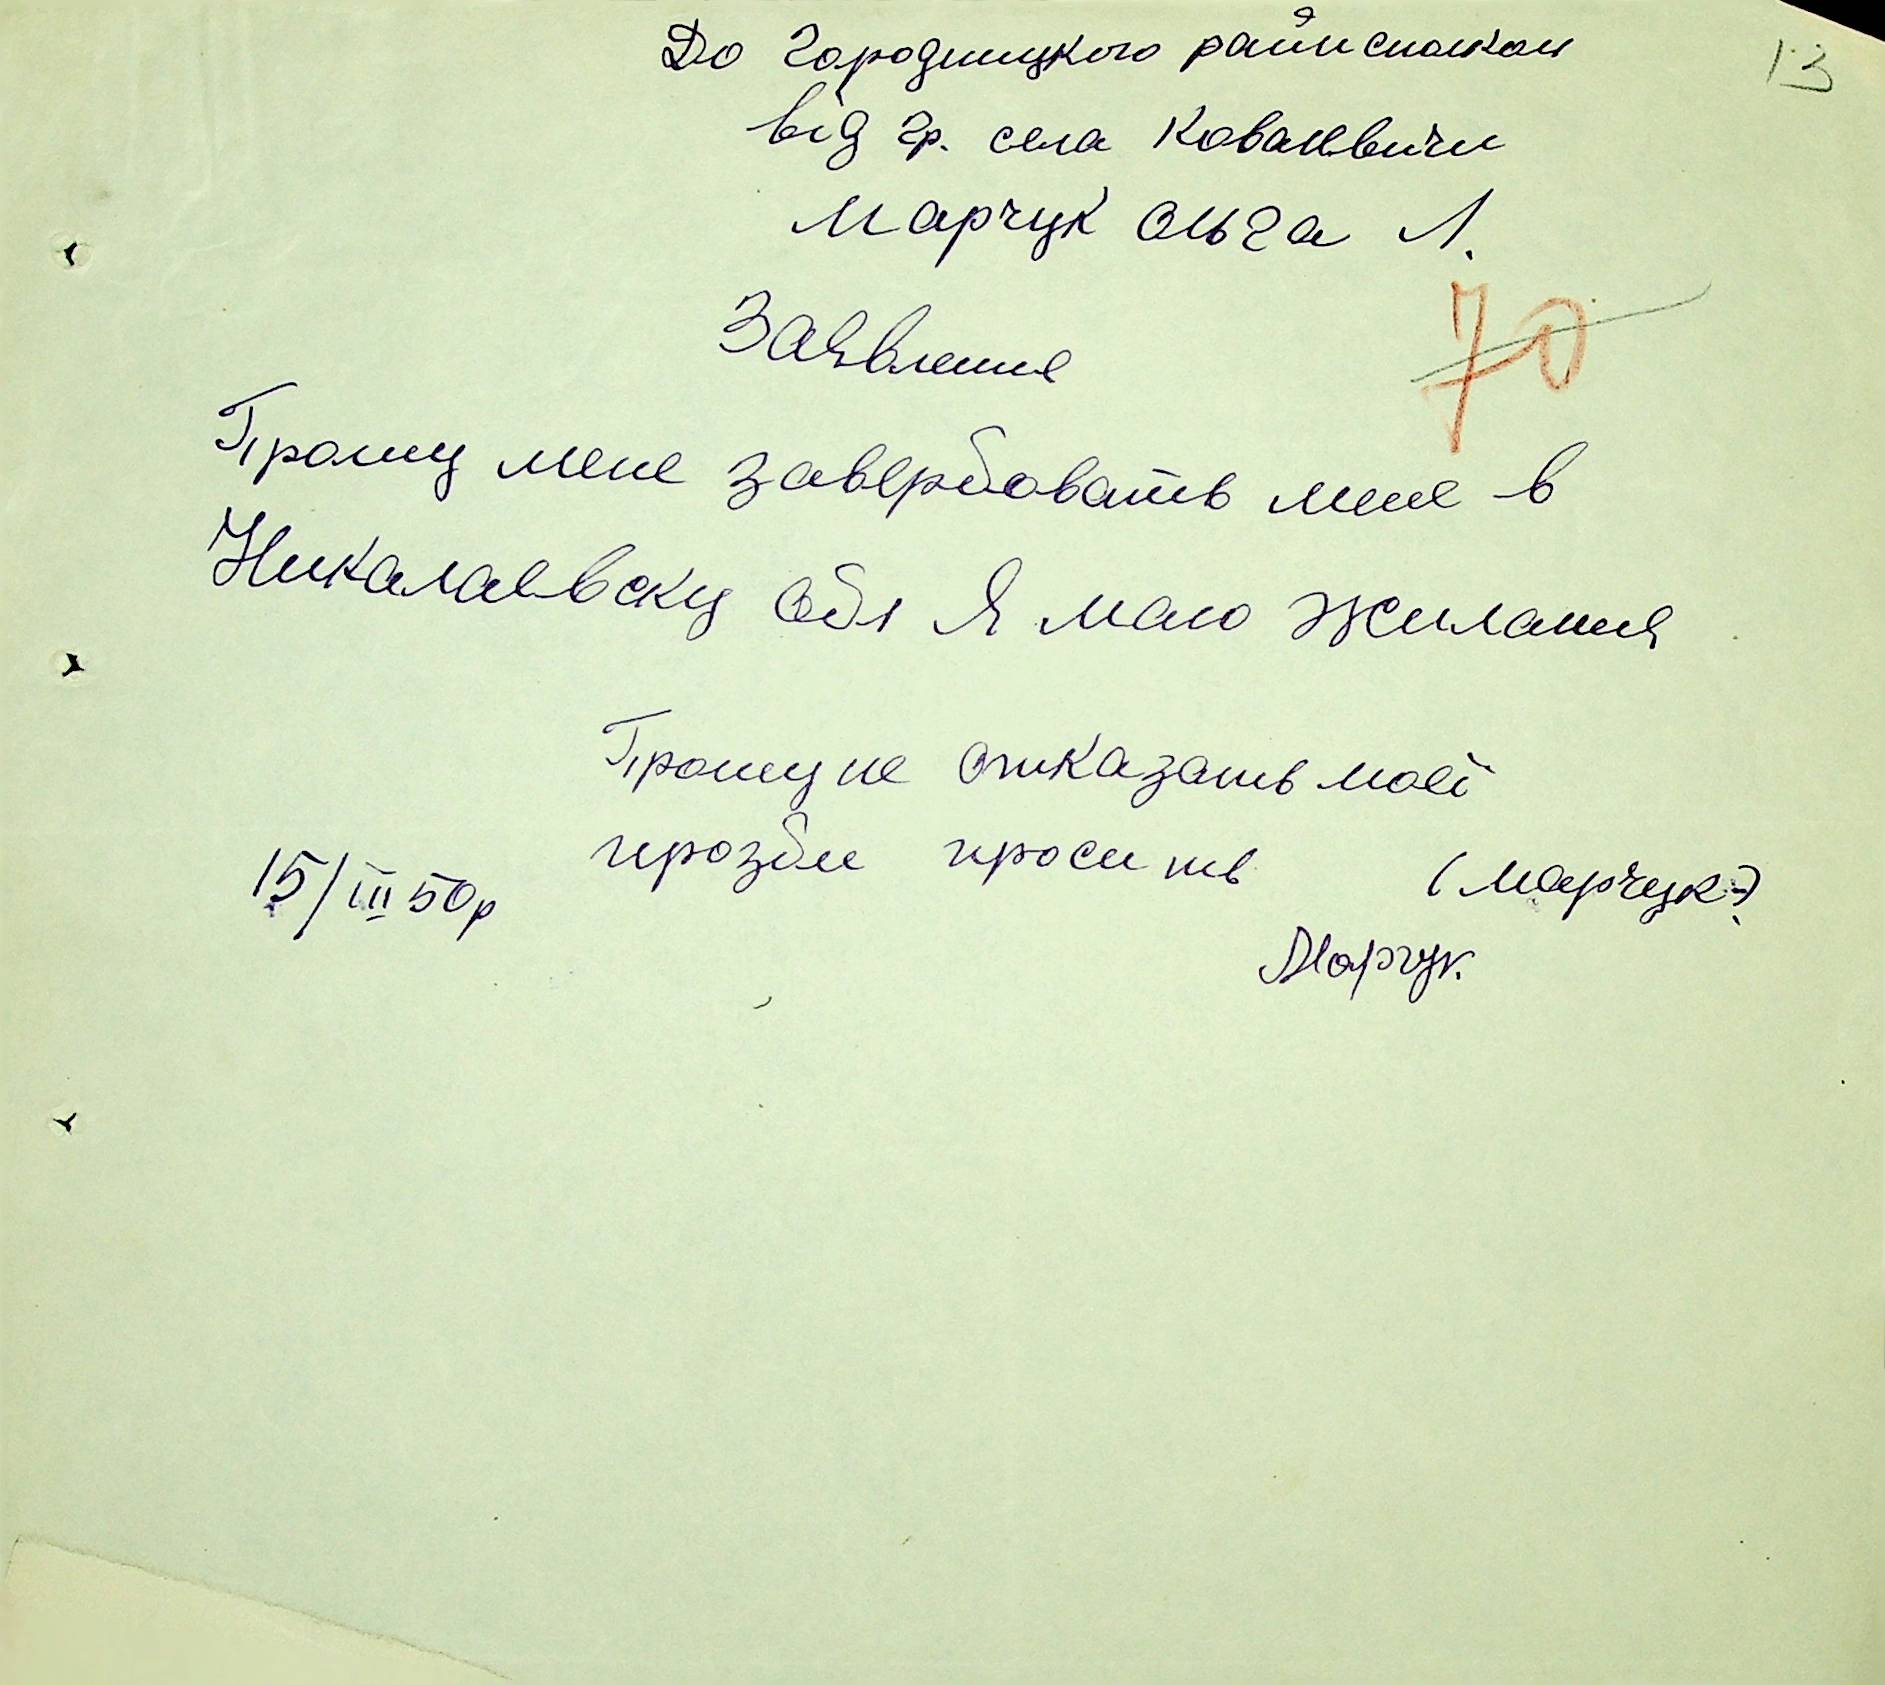 13
До Городницкого райисполком
від гр. села Ковалевичи
Марчук Ольга Л.
Заявление
70
Прошу мене завербовать мене в
Николаевску обл Я маю жилания
Прошу не отказать моеї
прозби просить (Марчук)
15/III 50р
Марчук